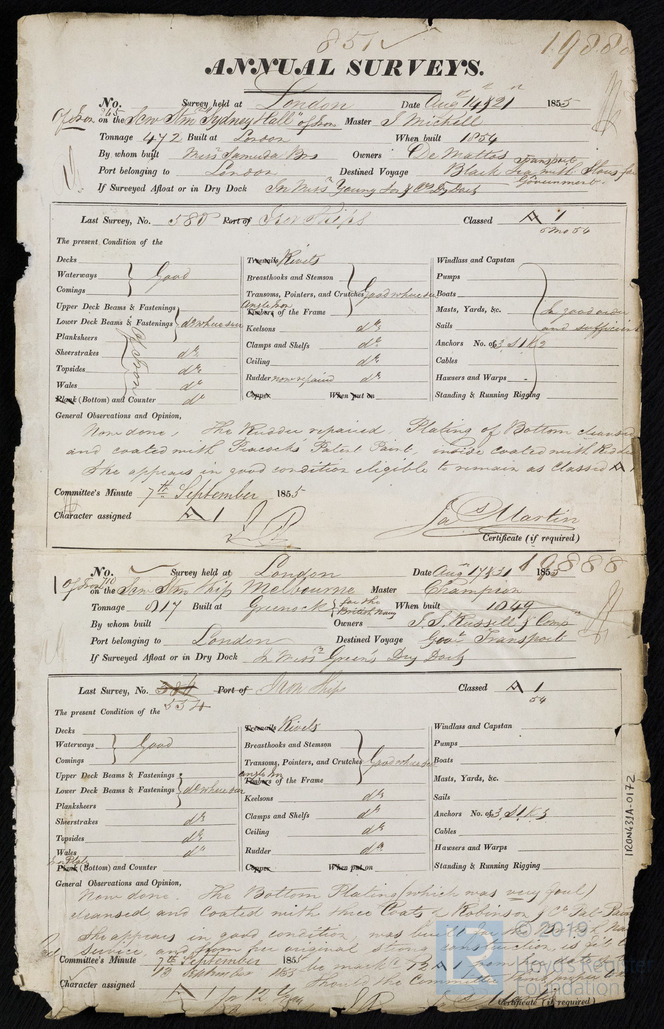 851 ✓ 1988
ANNUAL SURVEYS.
No. Survey held at London Date Augt 14 & 21st 1855
Of Iron on the Scw Stmr "Sydney Hall" of Iron Master J Mitchell
Tonnage 472 Built at London When built 1854
By whom built Messrs Samuda Bros Owners De Mattos
Transport
Port belonging to London Destined Voyage Black Sea with Stores for
Government
If Surveyed Afloat or in Dry Dock In Messrs Young Son & Co Dry Dock
Last Survey, No. 580 Port of Iron Ships Classed A 1
5 Mo 54
The present Condition of the
Decks
Waterways
Comings
Good
Upper Deck Beams & Fastenings
Lower Deck Beams & Fastenings do where seen
Planksheers
Sheerstrakes do
Topsides do
Wales do
Plank (Bottom) and Counter do
Of Iron
Treenails Rivets
Breasthooks and Stemson
Transoms, Pointers, and Crutches Good where seen
Angle Iron
Timbers of the Frame
Keelsons do
Clamps and Shelfs do
Ceiling do
Rudder now repaired do
Copper When put on
Windlass and Capstan
Pumps
Boats
Masts, Yards, &c.
Sails
In good order and sufficient
Anchors No. of 3 S 1 K 2
Cables
Hawsers and Warps
Standing & Running Rigging
General Observations and Opinion,
Now done, The Rudder repaired. Plating of Bottom cleansed
and coated with Peacock's Patent Paint, inside coated with Red
She appears in good condition eligible to remain as Classed A 1
Committee's Minute 7th September 1855
Character assigned A 1
Jas Martin
Certificate (if required)
19888
No. Survey held at London Date Augt 17 & 31 1855
Of Iron on the Scw Stm Ship Melbourne Master Champion
Tonnage 817 Built at Greenock for the British Navy When built 1849
By whom built Owners J. S. Russell & Comp
Port belonging to London Destined Voyage Govt Transport
If Surveyed Afloat or in Dry Dock In Messrs Green's Dry Dock
Last Survey, No. 534 Port of Iron Ships Classed A 1
54
The present Condition of the
Decks
Waterways
Comings
Good
Upper Deck Beams & Fastenings
Lower Deck Beams & Fastenings do where seen
Planksheers
Sheerstrakes do
Topsides do
Wales do
Iron Plate
Plank (Bottom) and Counter
Treenails Rivets
Breasthooks and Stemson
Transoms, Pointers, and Crutches Good where seen
Angle Iron
Timbers of the Frame
Keelsons do
Clamps and Shelfs do
Ceiling do
Rudder do
Copper When put on
Windlass and Capstan
Pumps
Boats
Masts, Yards, &c.
Sails
Anchors No. of 3 S 1 K 3
Cables
Hawsers and Warps
Standing & Running Rigging
IRON431A-0172
General Observations and Opinion,
Now done. The Bottom Plating (which was very foul)
cleansed and coated with three Coats of Robinson & Co Pat. Paint
She appears in good condition, was built for the
Service, and from her original strong construction, is
Committee's Minute 7th September 1855 be marked 12 A 1 from
13 September 1855 should the Committee
Character assigned A 1 for 12 Years
Certificate (if required)
© 2019
Lloyd's Register
Foundation